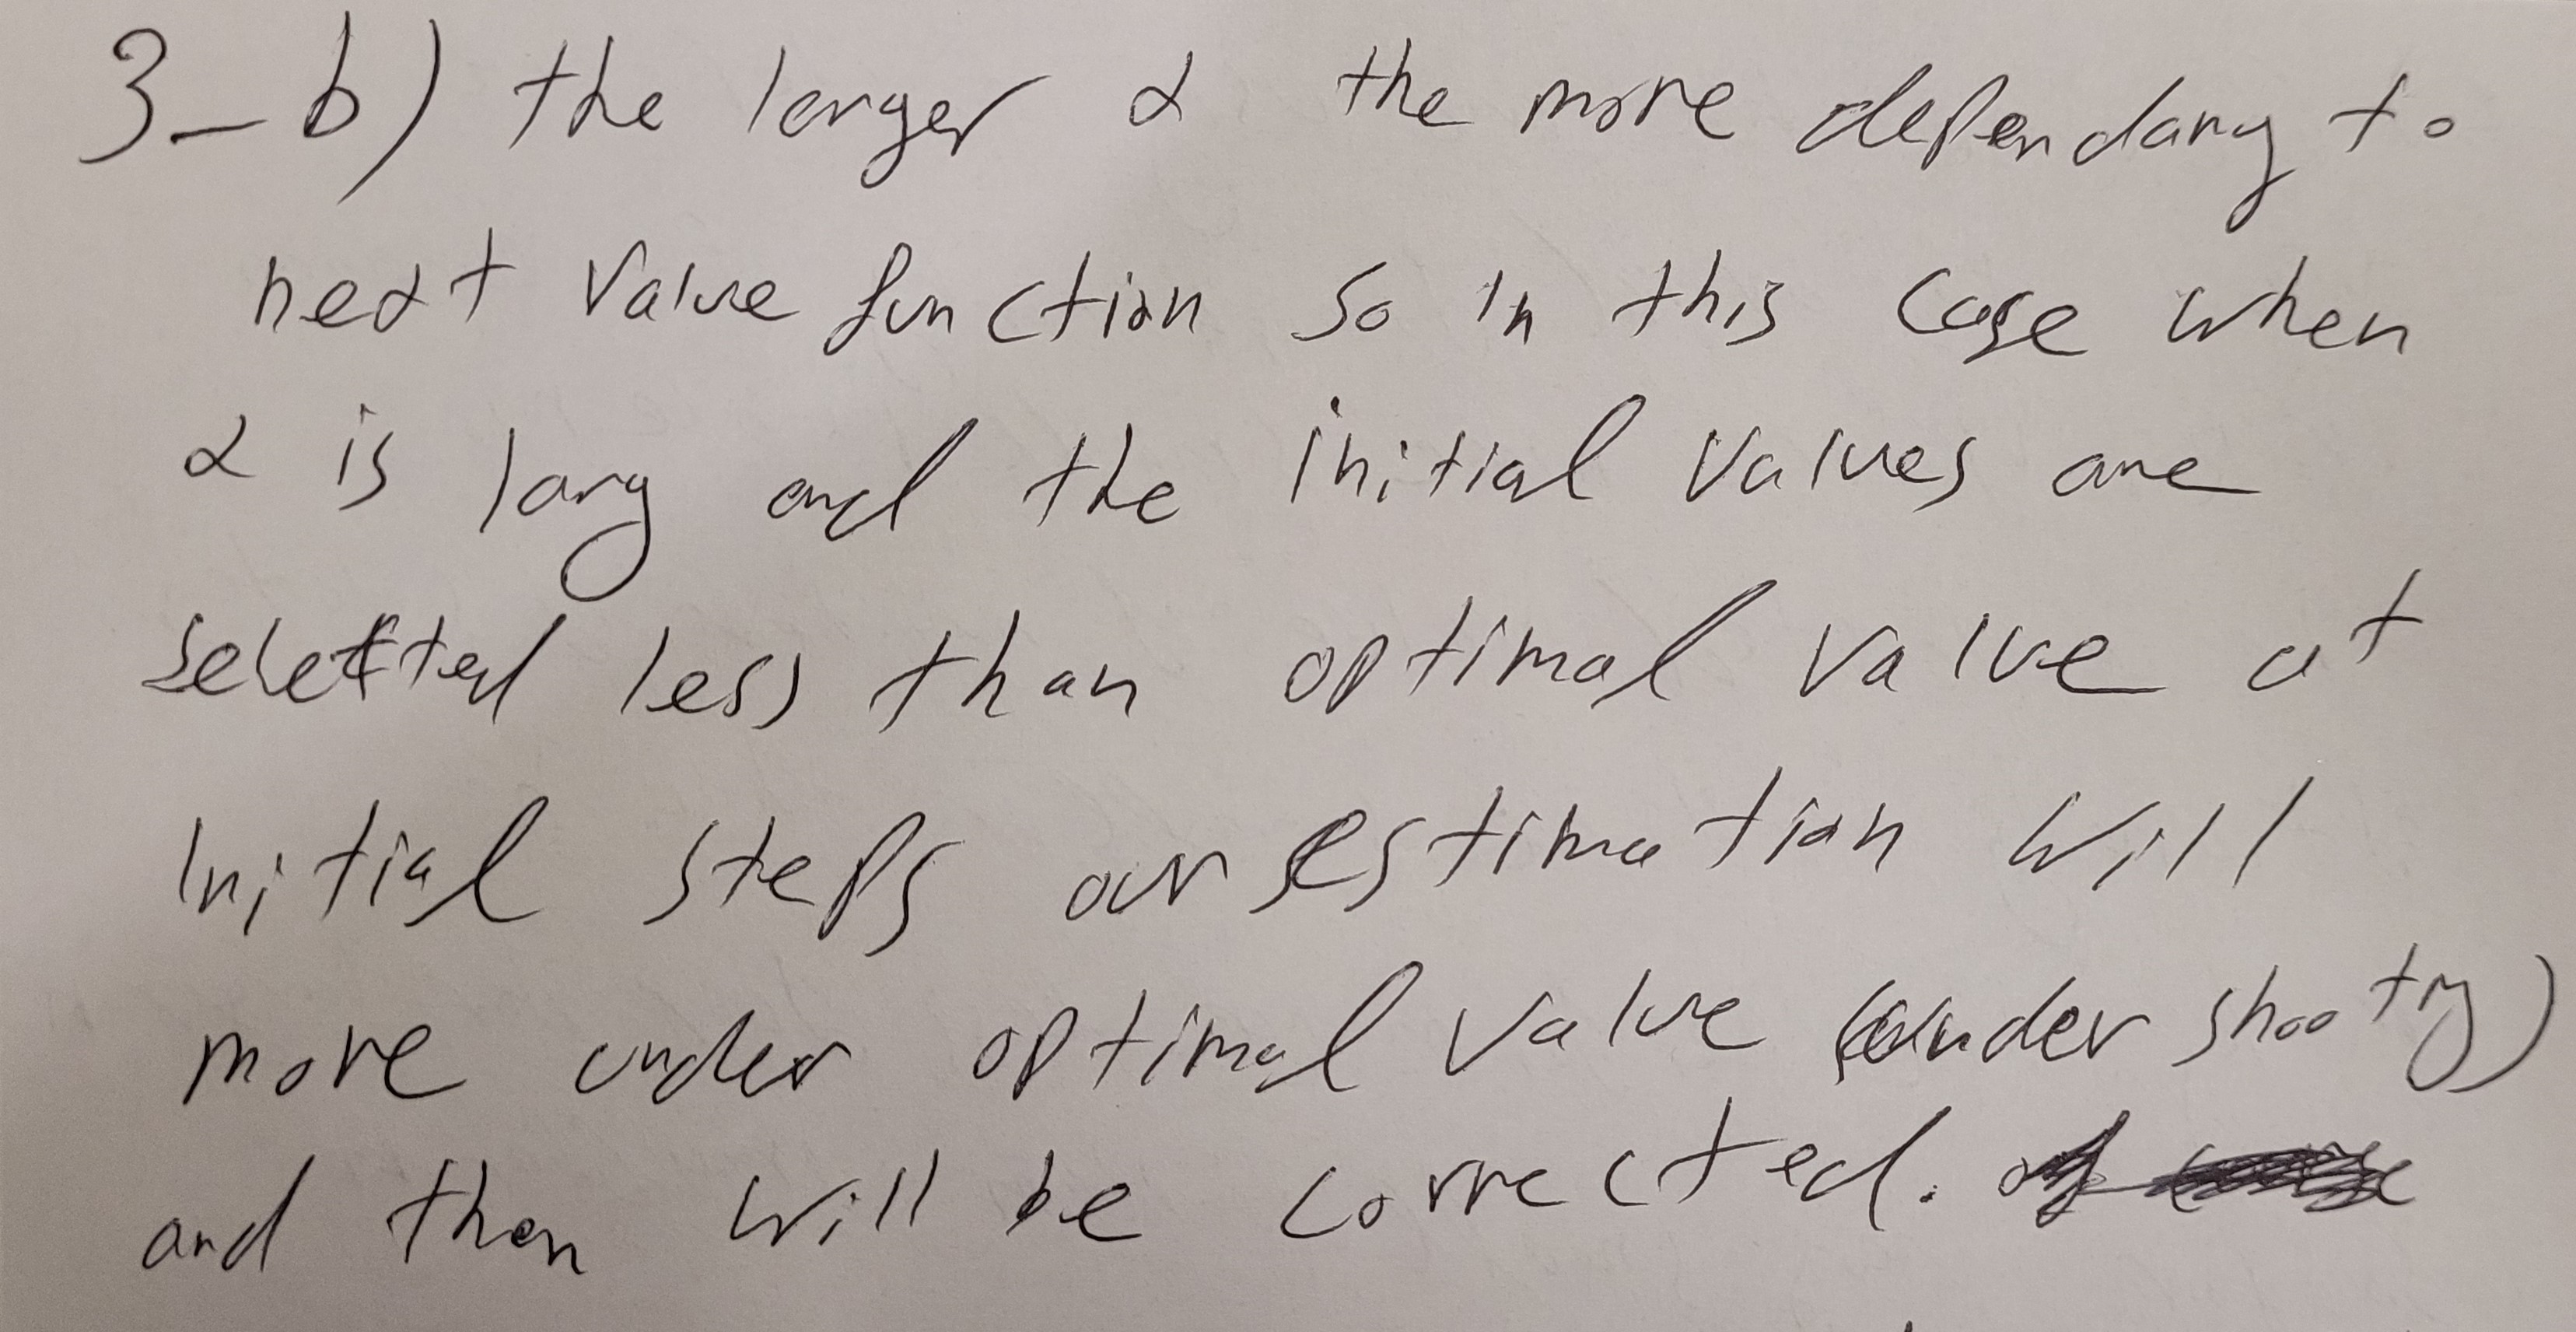 3_b) the larger α the more dependancy to
next value function so in this case when
α is larg and the initial values are
selected less than optimal value at
initial steps our estimation will
more under optimal value (under shooting)
and then will be corrected.